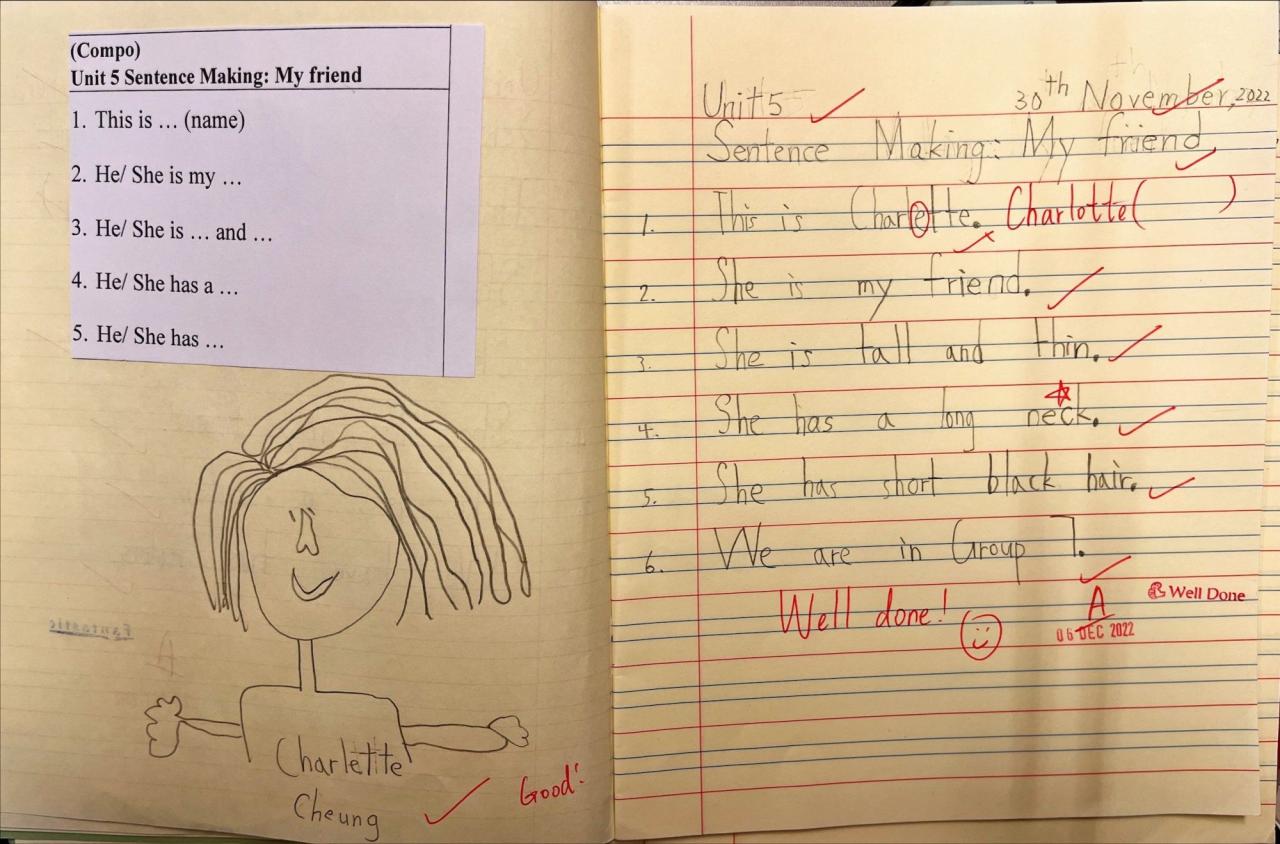 (Compo)
Unit 5 Sentence Making: My friend
1. This is … (name)
2. He/ She is my …
3. He/ She is … and …
4. He/ She has a …
5. He/ She has …
Fantastic
A
Charlette
Cheung
Good!
Unit 5
30th November, 2022
Sentence Making: My friend
1. This is Charlette. Charlotte( )
2. She is my friend.
3. She is tall and thin.
4. She has a long neck.
5. She has short black hair.
6. We are in Group 7.
Well done!
A
Well Done
06 DEC 2022